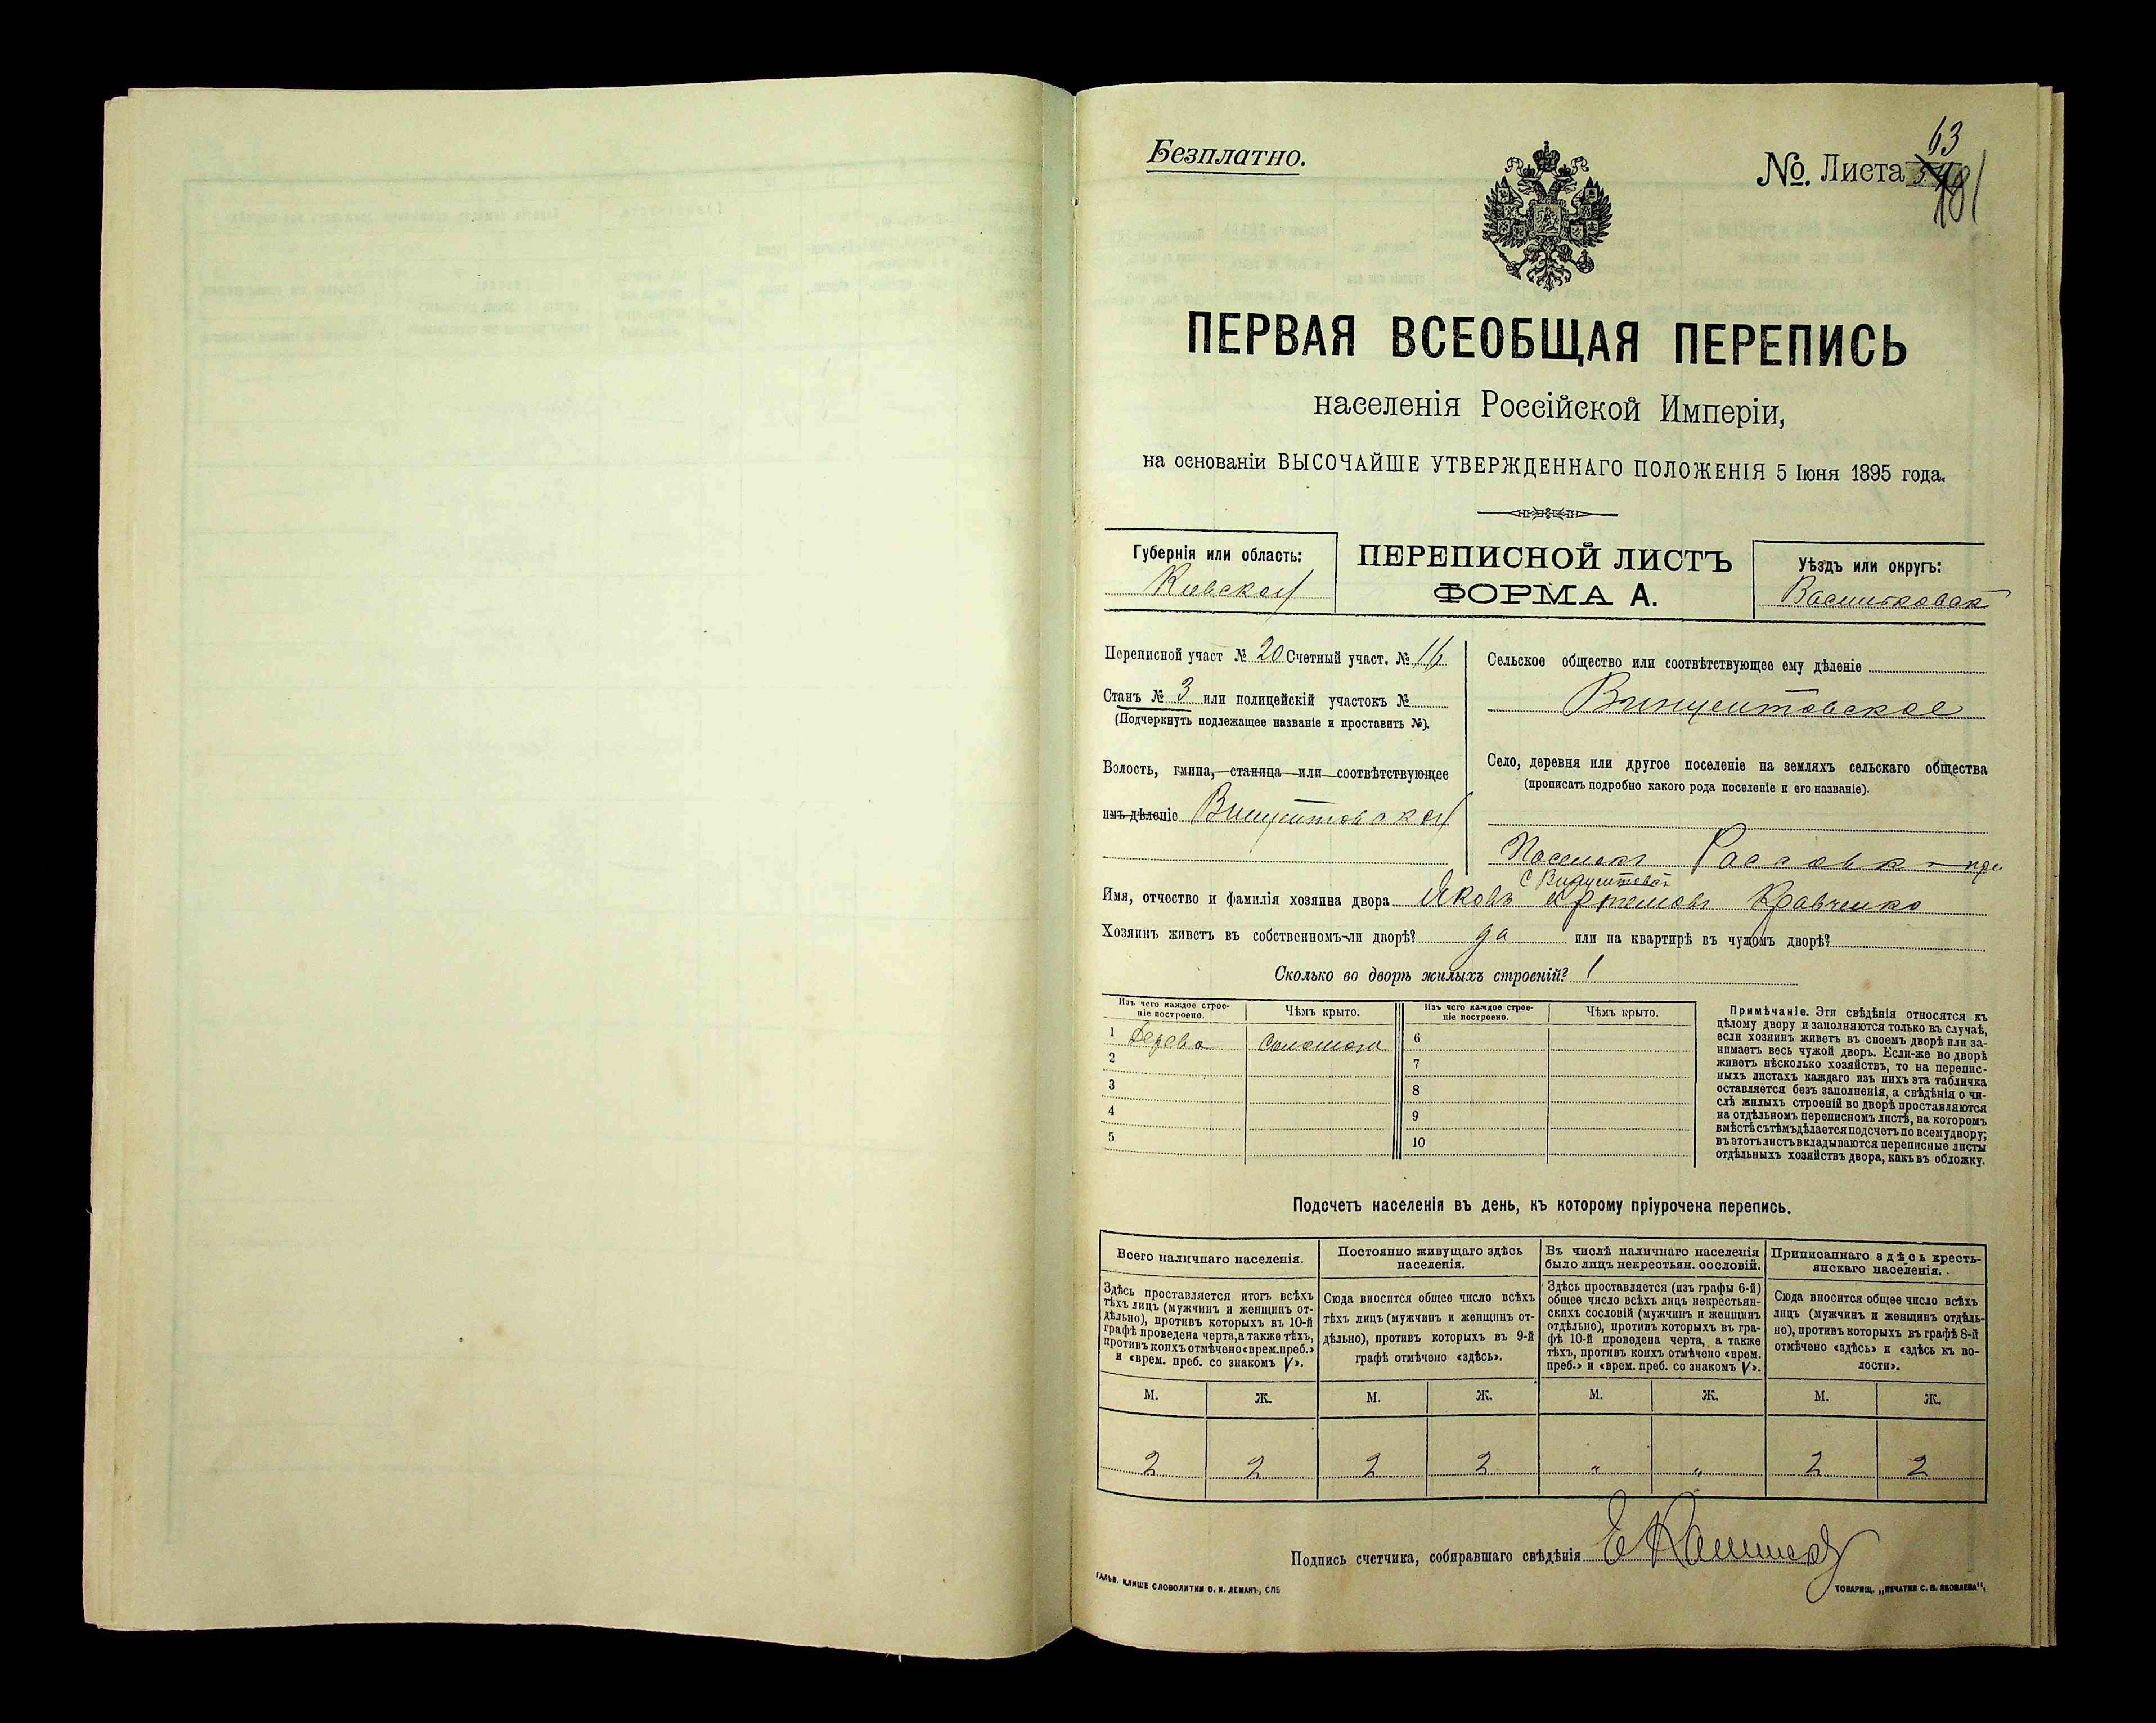 Безплатно.
63
№. Листа
181
ПЕРВАЯ ВСЕОБЩАЯ ПЕРЕПИСЬ
населенія Россійской Имперіи,
на основаніи ВЫСОЧАЙШЕ УТВЕРЖДЕННАГО ПОЛОЖЕНІЯ 5 Іюня 1895 года.
Губернія или область:
Кіевской
ПЕРЕПИСНОЙ ЛИСТЪ
ФОРМА А.
Уѣздъ или округъ:
Васильковск
Переписной участ № 20 Счетный участ. № 16
Станъ № 3 или полицейскій участокъ №
(Подчеркнуть подлежащее названіе и проставить №).
Волость, гмина, станица или соотвѣтствующее
имъ дѣленіе Винцентовской
Сельское общество или соотвѣтствующее ему дѣленіе
Винцентовское
Село, деревня или другое поселеніе на земляхъ сельскаго общества
(прописать подробно какого рода поселеніе и его названіе).
Поселокъ Рассовка при
с Винцентовкѣ
Имя, отчество и фамилія хозяина двора Яковъ Артемовъ Кравченко
Хозяинъ живетъ въ собственномъ-ли дворѣ? да или на квартирѣ въ чужомъ дворѣ?
Сколько во дворѣ жилыхъ строеній? 1
Изъ чего каждое строе-
ніе построено.
Чѣмъ крыто.
Изъ чего каждое строе-
ніе построено.
Чѣмъ крыто.
1 Дерева Соломою 6
2 7
3 8
4 9
5 10
Примѣчаніе. Эти свѣдѣнія относятся къ
цѣлому двору и заполняются только въ случаѣ,
если хозяинъ живетъ въ своемъ дворѣ или за-
нимаетъ весь чужой дворъ. Если-же во дворѣ
живетъ нѣсколько хозяйствъ, то на перепис-
ныхъ листахъ каждаго изъ нихъ эта табличка
оставляется безъ заполненія, а свѣдѣнія о чи-
слѣ жилыхъ строеній во дворѣ проставляются
на отдѣльномъ переписномъ листѣ, на которомъ
вмѣстѣ съ тѣмъ дѣлается подсчетъ по всему двору;
въ этотъ листъ вкладываются переписные листы
отдѣльныхъ хозяйствъ двора, какъ въ обложку.
Подсчетъ населенія въ день, къ которому пріурочена перепись.
Всего наличнаго населенія.
Здѣсь проставляется итогъ всѣхъ
тѣхъ лицъ (мужчинъ и женщинъ от-
дѣльно), противъ которыхъ въ 10-й
графѣ проведена черта, а также тѣхъ,
противъ коихъ отмѣчено «врем. преб.»
и «врем. преб. со знакомъ V».
Постоянно живущаго здѣсь
населенія.
Сюда вносится общее число всѣхъ
тѣхъ лицъ (мужчинъ и женщинъ от-
дѣльно), противъ которыхъ въ 9-й
графѣ отмѣчено «здѣсь».
Въ числѣ наличнаго населенія
было лицъ некрестьян. сословій.
Здѣсь проставляется (изъ графы 6-й)
общее число всѣхъ лицъ некрестьян-
скихъ сословій (мужчинъ и женщинъ
отдѣльно), противъ которыхъ въ гра-
фѣ 10-й проведена черта, а также
тѣхъ, противъ коихъ отмѣчено «врем.
преб.» и «врем. преб. со знакомъ V».
Приписаннаго здѣсь кресть-
янскаго населенія.
Сюда вносится общее число всѣхъ
лицъ (мужчинъ и женщинъ отдѣль-
но), противъ которыхъ въ графѣ 8-й
отмѣчено «здѣсь» и «здѣсь къ во-
лости».
М. Ж. М. Ж. М. Ж. М. Ж.
2 2 2 2 " " 2 2
Подпись счетчика, собиравшаго свѣдѣнія
ГАЛЬВ. КЛИШЕ СЛОВОЛИТНИ О. И. ЛЕМАНЪ, СПБ
ТОВАРИЩ. „ПЕЧАТНЯ С. П. ЯКОВЛЕВА“,